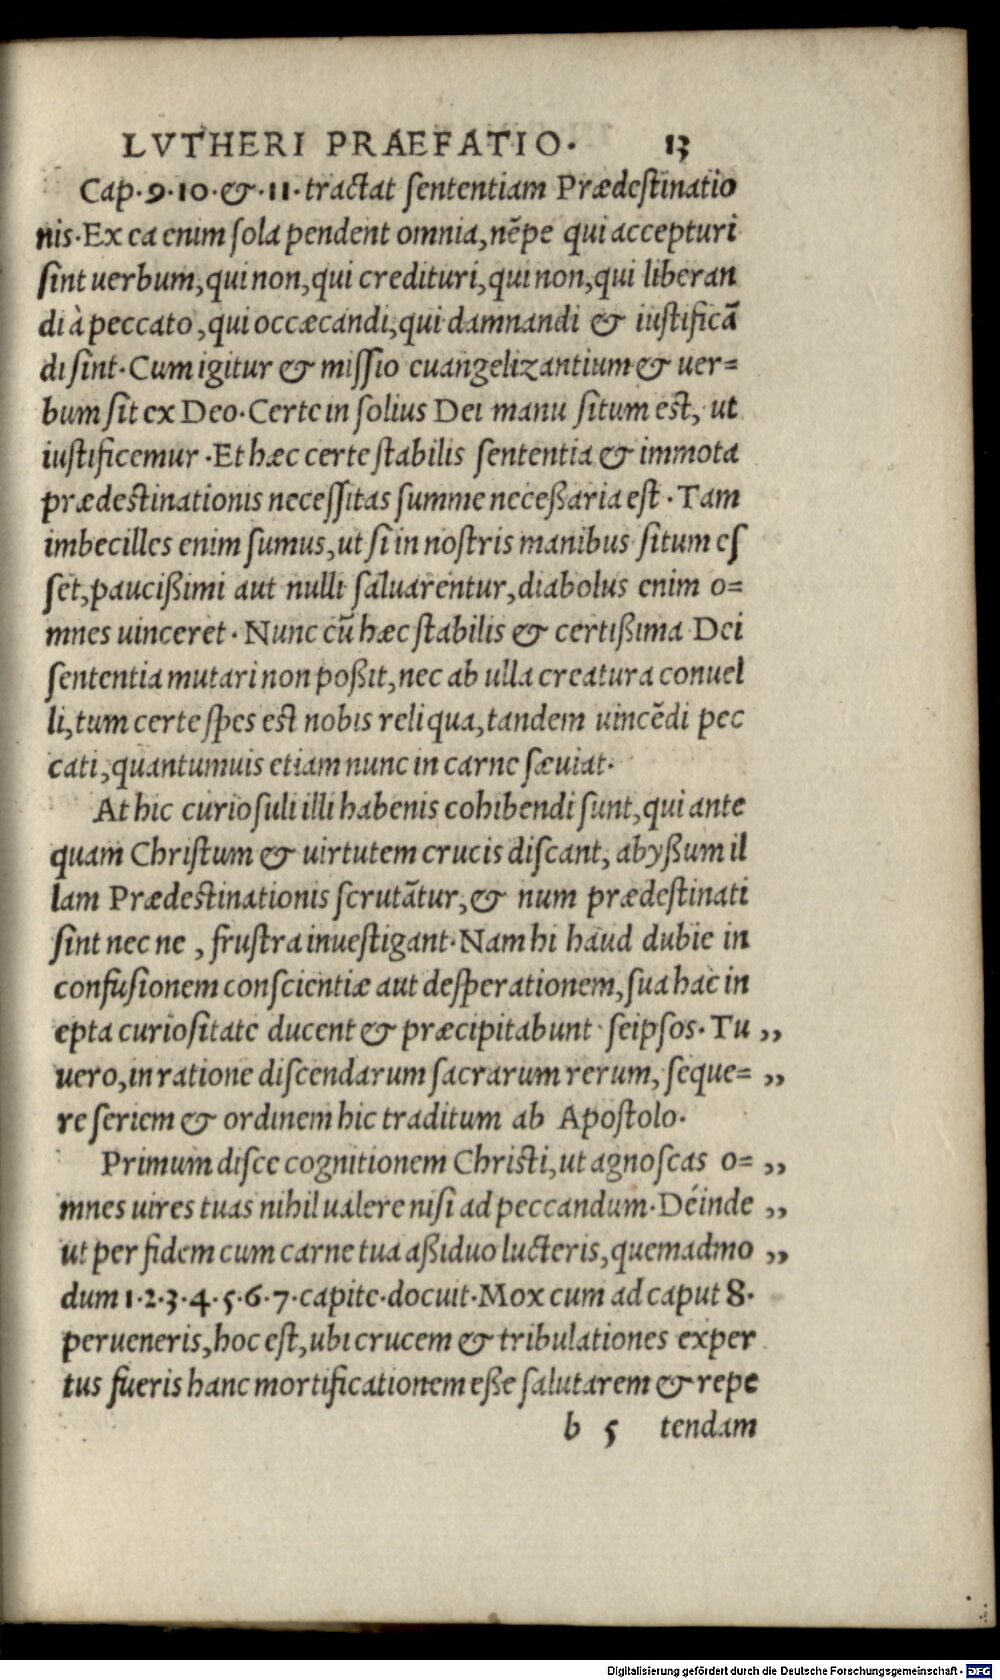 LVTHERI PRAEFATIO. 13
Cap.9.10.&.11.tractat sententiam Prædestinatio
nis.Ex ea enim sola pendent omnia,nẽpe qui accepturi
sint uerbum,qui non,qui credituri,qui non,qui liberan
di à peccato,qui occæcandi,qui damnandi & iustificã
di sint.Cum igitur & missio euangelizantium & uer=
bum sit ex Deo.Certe in solius Dei manu situm est, ut
iustificemur.Et hæc certe stabilis sententia & immota
prædestinationis necessitas summe neceßaria est.Tam
imbecilles enim sumus,ut si in nostris manibus situm es
set,paucißimi aut nulli saluarentur,diabolus enim o=
mnes uinceret.Nunc cũ hæc stabilis & certißima Dei
sententia mutari non poßit,nec ab ulla creatura conuel
li,tum certe spes est nobis reliqua,tandem uincẽdi pec
cati,quantumuis etiam nunc in carne sæuiat.
At hic curiosuli illi habenis cohibendi sunt,qui ante
quam Christum & uirtutem crucis discant, abyßum il
lam Prædestinationis scrutãtur,& num prædestinati
sint nec ne, frustra inuestigant.Nam hi haud dubie in
confusionem conscientiæ aut desperationem,sua hac in
epta curiositate ducent & præcipitabunt seipsos.Tu ,,
uero,in ratione discendarum sacrarum rerum, seque= ,,
re seriem & ordinem hic traditum ab Apostolo.
Primum disce cognitionem Christi,ut agnoscas o= ,,
mnes uires tuas nihil ualere nisi ad peccandum.Déinde ,,
ut per fidem cum carne tua aßiduo lucteris,quemadmo ,,
dum 1.2.3.4.5.6.7.capite.docuit.Mox cum ad caput 8.
perueneris,hoc est,ubi crucem & tribulationes exper
tus fueris hanc mortificationem eße salutarem & repe
b 5 tendam
Digitalisierung gefördert durch die Deutsche Forschungsgemeinschaft - DFG